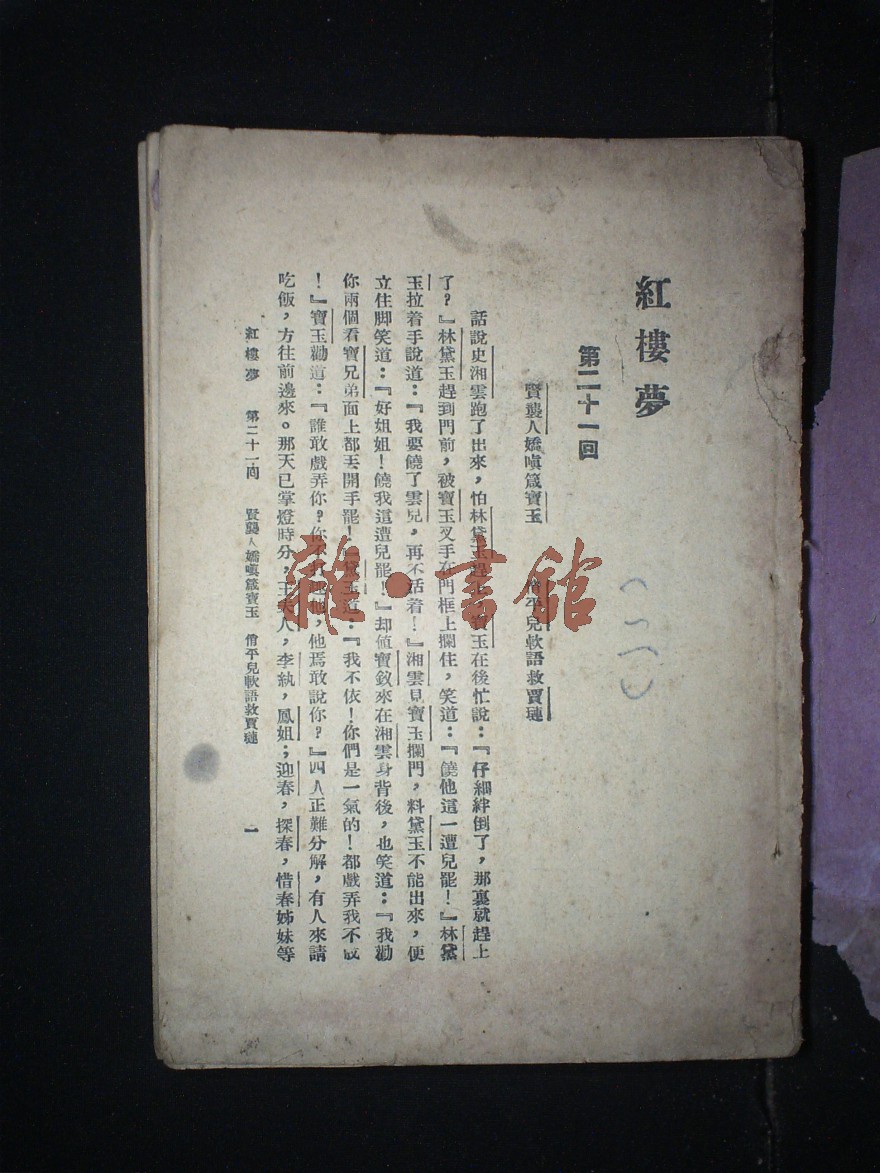 紅樓夢
第二十一回
賢襲人嬌嗔箴寶玉 俏平兒軟語救賈璉
話說史湘雲跑了出來，怕林黛玉趕上，寶玉在後忙說：『仔細絆倒了，那裏就趕上
了？』林黛玉趕到門前，被寶玉叉手在門框上攔住，笑道：『饒他這一遭兒罷！』林黛
玉拉着手說道：『我要饒了雲兒，再不活着！』湘雲見寶玉攔門，料黛玉不能出來，便
立住脚笑道：『好姐姐！饒我這遭兒罷！』却値寶釵來在湘雲身背後，也笑道：『我勸
你兩個看寶兄弟面上都丟開手罷！』黛玉道：『我不依！你們是一氣的！都戲弄我不成
！』寶玉勸道：『誰敢戲弄你？你不打趣他，他焉敢說你？』四人正難分解，有人來請
吃飯，方往前邊來。那天已掌燈時分，王夫人，李紈，鳳姐；迎春，探春，惜春姊妹等
紅樓夢 第二十一回 賢襲人嬌嗔箴寶玉 俏平兒軟語救賈璉 一
雜·書館